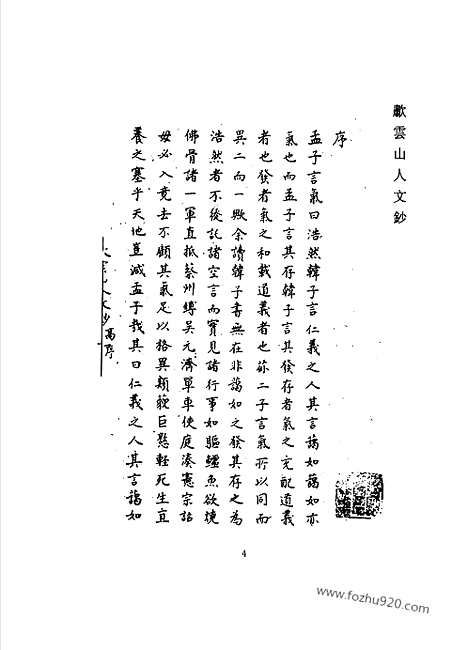 歗雲山人文鈔
序
孟子言氣曰浩然韓子言仁義之人其言藹如藹如亦
氣也而孟子言其存韓子言其發存者氣之充配道義
者也發者氣之和載道義者也兹二子言氣所以同而
異二而一歟余讀韓子書無在非藹如之發其存之為
浩然者不從託諸空言而實見諸行事如驅鱷魚欲燒
佛骨諸一軍直抵蔡州縛吳元濟單車使庭湊憲宗詔
毋必入竟去不顧其氣足以格異類藐巨憝輕死生直
養之塞乎天地豈減孟子哉其曰仁義之人其言藹如
人文鈔
馮序
4
www.fozhu920.com